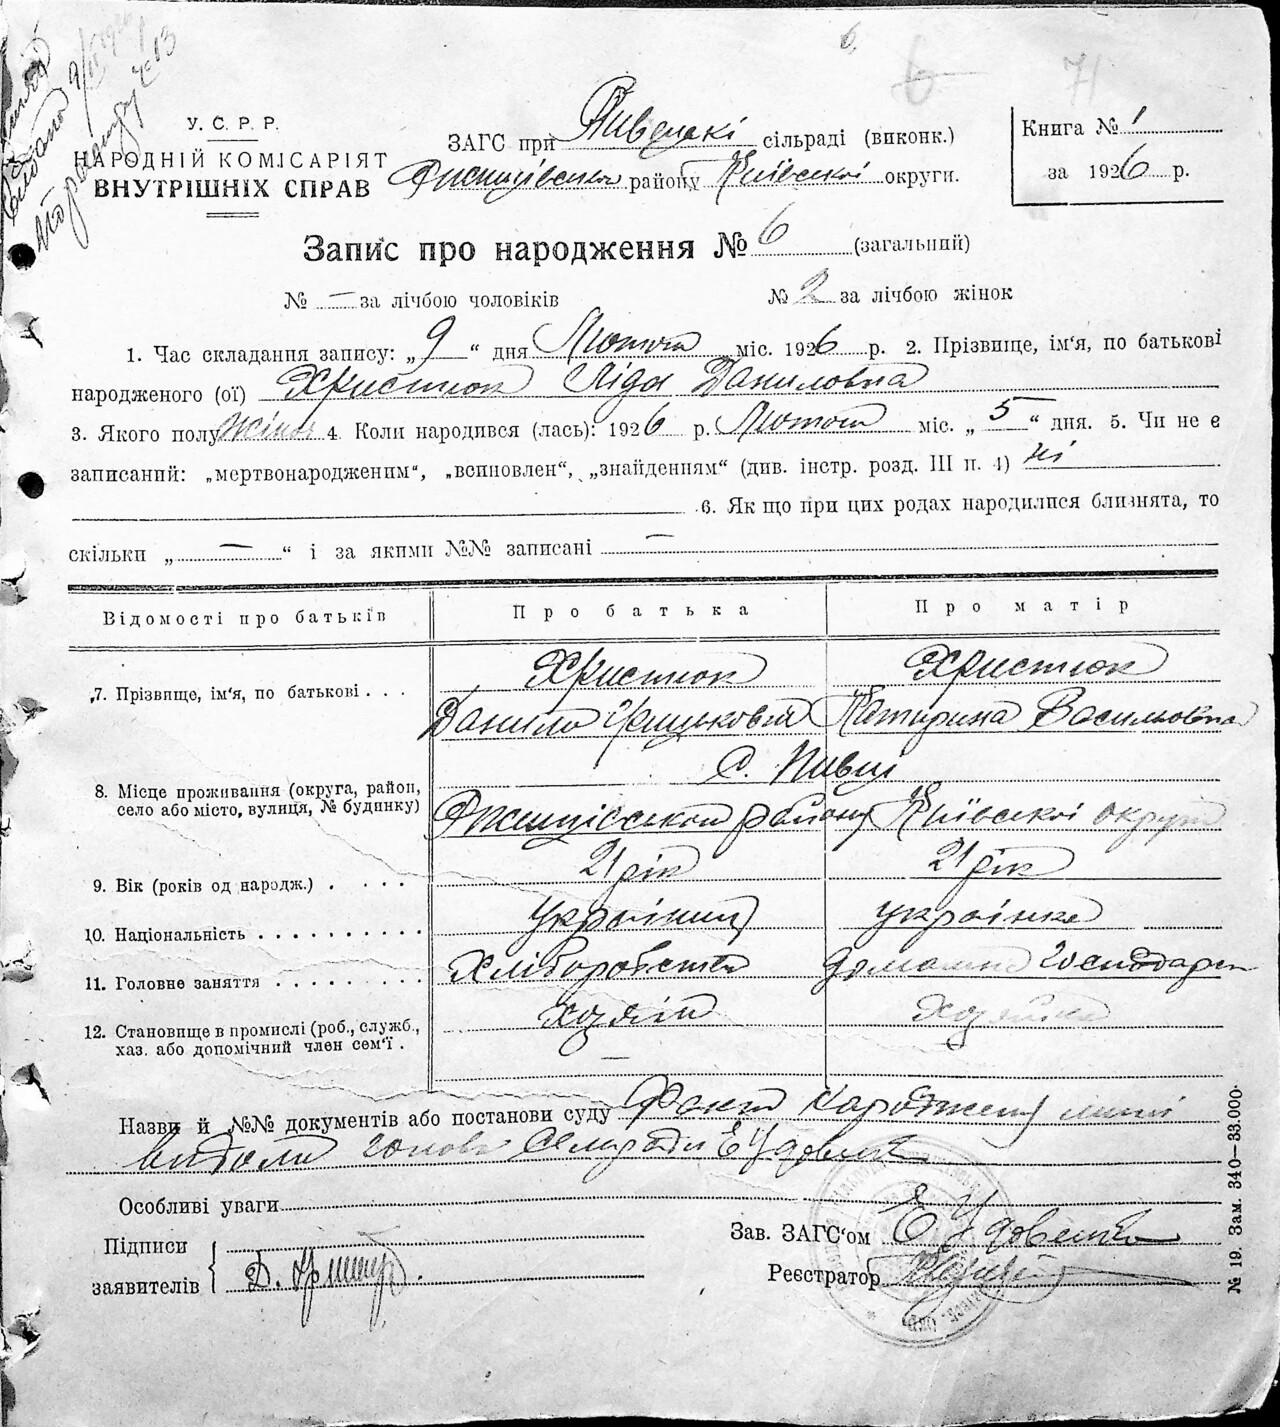 6.
6
71
№ 13
У. С. Р. Р.
НАРОДНІЙ КОМІСАРІЯТ
ВНУТРІШНІХ СПРАВ
ЗАГС при Пивецькі сільраді (виконк.)
району Київської округи.
Книга № 1
за 1926 р.
Запис про народження № 6 (загальний)
№ — за лічбою чоловіків № 2 за лічбою жінок
1. Час складання запису: „ 9 “ дня Лютого міс. 1926 р. 2. Прізвище, ім'я, по батькові
народженого (ої) Христюк Ліда Даниловна
3. Якого полу жіноч 4. Коли народився (лась): 1926 р. Лютого міс. „ 5 “ дня. 5. Чи не є
записаний: „мертвонародженим“, „всиновлен“, „знайденням“ (див. інстр. розд. III п. 4) ні
6. Як що при цих родах народилися близнята, то
скільки „ — “ і за якими №№ записані —
Відомості про батьків Про батька Про матір
7. Прізвище, ім'я, по батькові . . . Христюк Христюк
Данило Катирина Васильовна
с. Пивці
8. Місце проживання (округа, район,
село або місто, вулиця, № будинку) району Київської округи
9. Вік (років од народж.) . . . . 21 рік 21 рік
10. Національність . . . . . . . . . . українець українка
11. Головне заняття . . . . . . . . . Хліборобство домашне господарст
12. Становище в промислі (роб., служб., хозяїн хозяйка
хаз. або допомічний член сем'ї .
—
Назви й №№ документів або постанови суду Факт народження
видали голова Сельради Е Удовенко
Особливі уваги
Підписи
заявителів Д.
Зав. ЗАГС'ом Е Удовенко
Реєстратор
№ 19. Зам. 340—33.000.